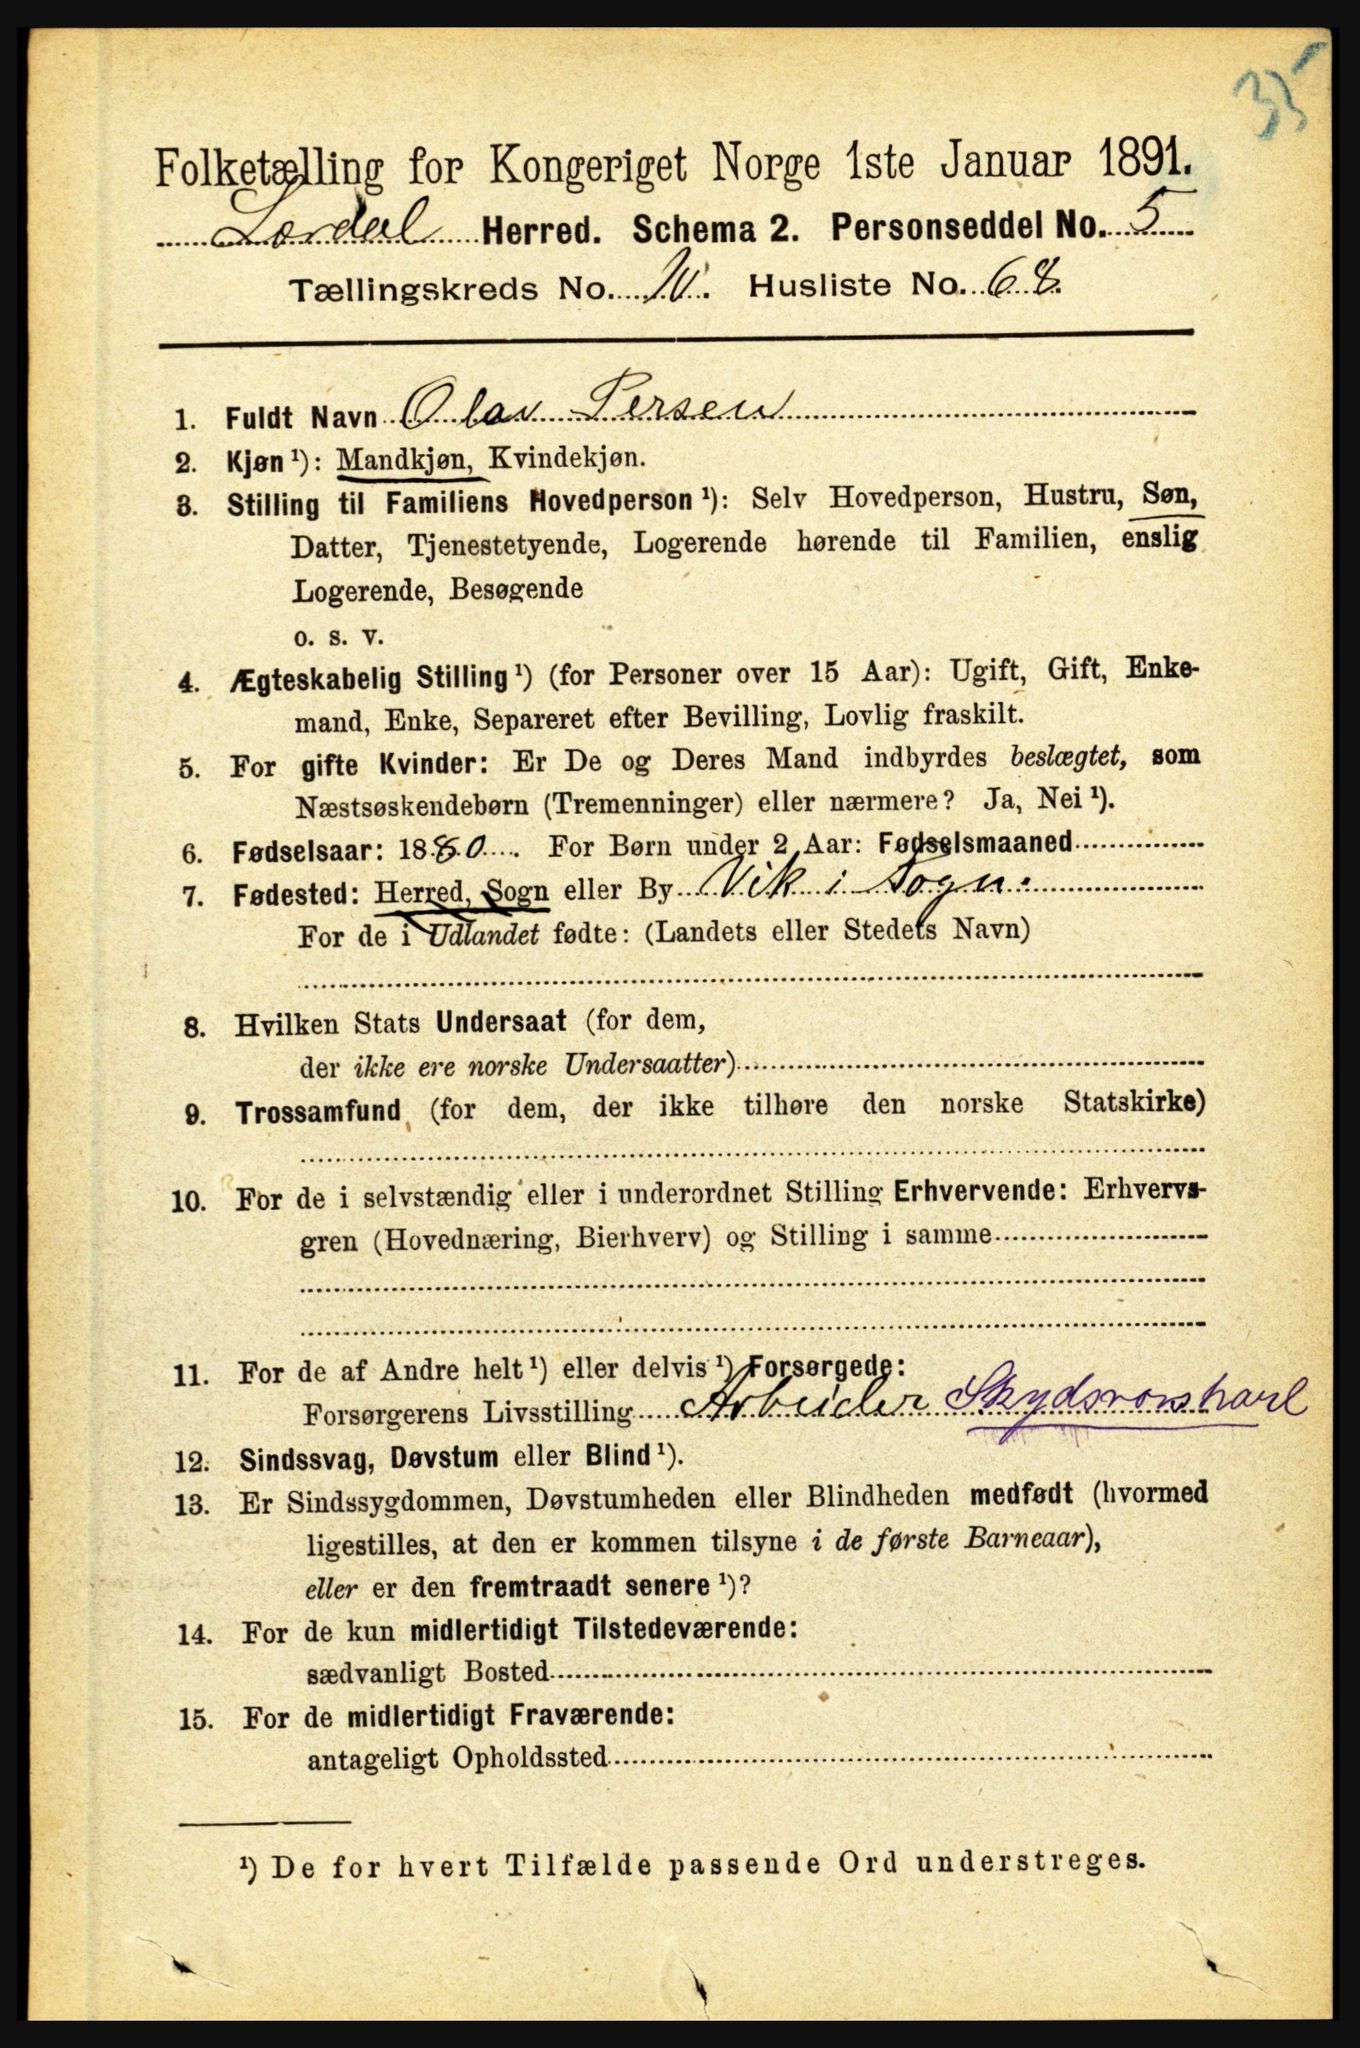 35
Folketælling for Kongeriget Norge 1ste Januar 1891.
Lærdal Herred. Schema 2. Personseddel No. 5
Tællingskreds No. Husliste No. 68.
1. Fuldt Navn Olav Persen
2. Kjøn ¹): Mandkjøn, Kvindekjøn.
3. Stilling til Familiens Hovedperson ¹): Selv Hovedperson, Hustru, Søn,
Datter, Tjenestetyende, Logerende hørende til Familien, enslig
Logerende, Besøgende
o. s. v.
4. Ægteskabelig Stilling ¹) (for Personer over 15 Aar): Ugift, Gift, Enke-
mand, Enke, Separeret efter Bevilling, Lovlig fraskilt.
5. For gifte Kvinder: Er De og Deres Mand indbyrdes beslægtet, som
Næstsøskendebørn (Tremenninger) eller nærmere? Ja, Nei ¹).
6. Fødselsaar: 1880. For Børn under 2 Aar: Fødselsmaaned
7. Fødested: Herred, Sogn eller By Vik i Sogn.
For de i Udlandet fødte: (Landets eller Stedets Navn)
8. Hvilken Stats Undersaat (for dem,
der ikke ere norske Undersaatter)
9. Trossamfund (for dem, der ikke tilhøre den norske Statskirke)
10. For de i selvstændig eller i underordnet Stilling Erhvervende: Erhvervs-
gren (Hovednæring, Bierhverv) og Stilling i samme
11. For de af Andre helt ¹) eller delvis ¹) Forsørgede:
Forsørgerens Livsstilling Arbeider
12. Sindssvag, Døvstum eller Blind ¹).
13. Er Sindssygdommen, Døvstumheden eller Blindheden medfødt (hvormed
ligestilles, at den er kommen tilsyne i de første Barneaar),
eller er den fremtraadt senere ¹)?
14. For de kun midlertidigt Tilstedeværende:
sædvanligt Bosted
15. For de midlertidigt Fraværende:
antageligt Opholdssted
¹) De for hvert Tilfælde passende Ord understreges.